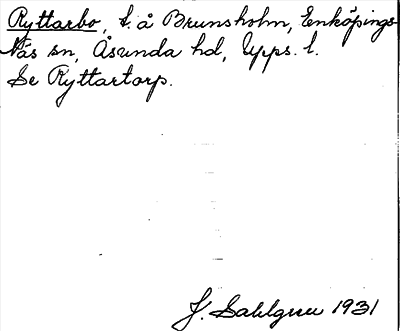 Ryttarbo, t. å Brunsholm, Enköpings-
Näs sn, Åsunda hd, Upps. l.
Se Ryttartorp.
J. Sahlgren 1931